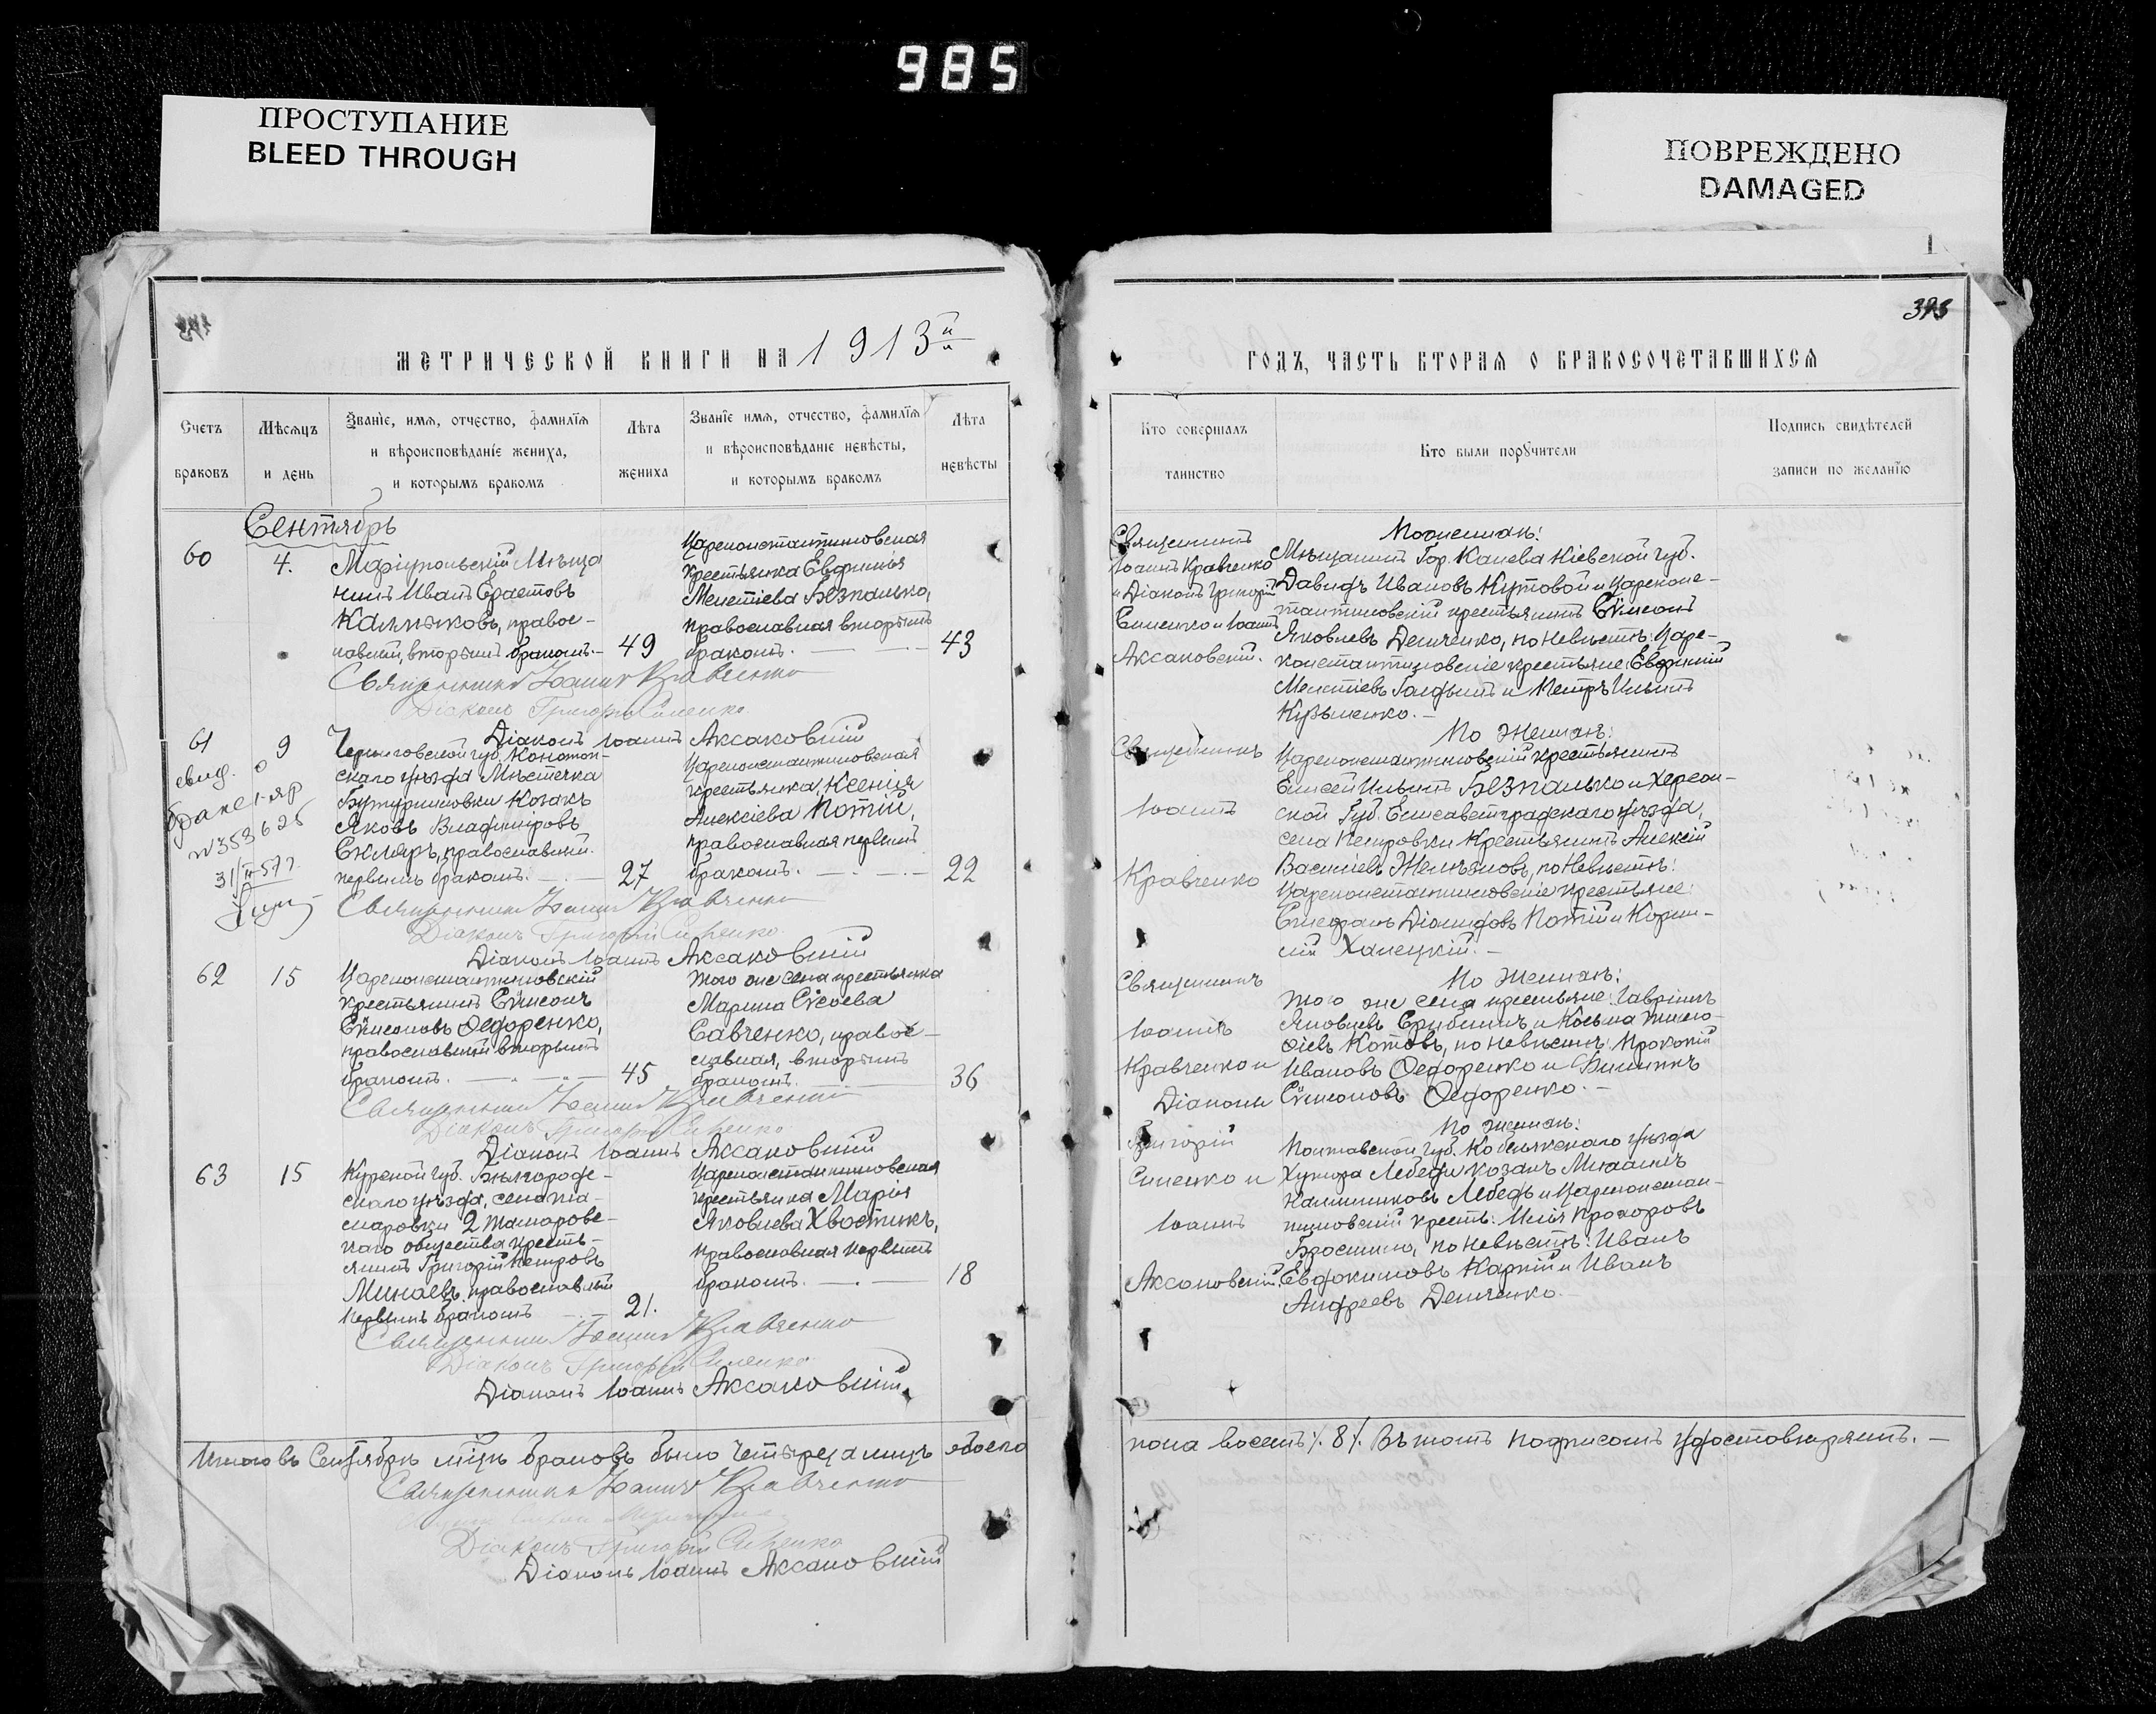 985
ПРОСТУПАНИЕ
BLEED THROUGH
ПОВРЕЖДЕНО
DAMAGED
395
МЕТРИЧЕСКОЙ КНИГИ НА 1913й
ГОДЪ, ЧАСТЬ ВТОРАЯ О БРАКОСОЧЕТАВШИХСЯ
Счетъ браковъ
Мѣсяцъ и день
Званіе, имя, отчество, фамилія и вѣроисповѣданіе жениха, и которымъ бракомъ
Лѣта жениха
Званіе имя, отчество, фамилія и вѣроисповѣданіе невѣсты, и которымъ бракомъ
Лѣта невѣсты
Кто совершалъ таинство
Кто были поручители
Подпись свидѣтелей записи по желанію
Сентябрь
60
4.
Маріупольскій Мѣща
нинъ Иванъ Ерастовъ
Калмыковъ, правос-
лавный, вторымъ бракомъ.-
49
Цареконстантиновская
крестьянка Евфимія
Мелетіева Безпалько,
православная вторымъ
бракомъ.
43
Священникъ
Іоаннъ Кравченко
и Діаконъ Григорій
Синенко и Іоаннъ
Аксаковскій.
По женихѣ:
Мѣщанинъ Гор. Канева Кіевской губ.
Давидъ Ивановъ Кутовой и Цареконс-
тантиновскій крестьянинъ Сѵмеонъ
Яковлевъ Демченко, по Невѣстѣ: Царе-
константиновскіе крестьяне: Евфимій
Мелетіевъ и Петръ Ильинъ
Кузьменко.-
Священникъ Іоаннъ Кравченко
Діаконъ Григорій Синенко
Діаконъ Іоаннъ Аксаковскій
61
9
свид.
о
браке
№ 353626
31/III-57г.
Черниговской губ. Конотоп-
скаго уѣзда Мѣстечка
Батуриновки Козакъ
Яковъ Владиміровъ
Скляръ, православный.
первымъ бракомъ.
27
Цареконстантиновская
крестьянка, Ксенія
Алексіева Потій,
православная первымъ
бракомъ.
22
Священникъ
Іоаннъ
Кравченко
По Женихѣ:
Цареконстантиновскій крестьянинъ
Елисей Ильинъ Безпалько и Херсон-
ской Губ. Елисаветградскаго уѣзда,
села Петровки Крестьянинъ Алексій
Васильевъ, по Невѣстѣ:
Цареконстантиновскіе крестьяне:
Стефанъ Діомидовъ Потій и Корни-
лій Халецкій.-
Священникъ Іоаннъ Кравченко
Діаконъ Григорій Синенко
Діаконъ Іоаннъ Аксаковскій
62
15
Цареконстантиновскій
крестьянинъ Сѵмеонъ
Сѵмеоновъ Ѳедоренко,
православный вторымъ
бракомъ.
45
того же села крестьянка
Марина Сѵсоева
Савченко, правос-
лавная, вторымъ
бракомъ.
36
Священникъ
Іоаннъ
Кравченко и
Діаконы
Григорій
Синенко и
Іоаннъ
Аксаковскій.
По Женихѣ:
того же села крестьяне: Гавріилъ
Яковлевъ и Косьма Тимо-
ѳіевъ Котовъ, по невѣстѣ: Прокопій
Ивановъ Ѳедоренко и Филиппъ
Сѵмеоновъ Ѳедоренко.-
Священникъ Іоаннъ Кравченко
Діаконъ Григорій Синенко
Діаконъ Іоаннъ Аксаковскій
63
15
Курской губ. Бѣлгородс-
скаго уѣзда, села Та-
маровки 2 Тамаровс-
каго общества кресть-
янинъ Григорій Петровъ
Минаевъ, православный
первымъ бракомъ
21.
Цареконстантиновская
крестьянка Марія
Яковлева Хвостикъ,
православная первымъ
бракомъ.
18
По женихѣ:
Полтавской губ. Кобелякскаго уѣзда
Хутора Лебеди козакъ Михаилъ
Калинниковъ Лебедь и Цареконстан-
тиновскій крестьян: Илія Прохоровъ
по невѣстѣ: Иванъ
Евдокимовъ Карпій и Иванъ
Андреевъ Демченко.-
Священникъ Іоаннъ Кравченко
Діаконъ Григорій Синенко
Діаконъ Іоаннъ Аксаковскій
Итого въ Сентябрѣ м-цѣ браковъ было четыре, а лицъ обоего
пола восемь /. 8 /. Въ томъ подписомъ удостовѣряемъ.-
Священникъ Іоаннъ Кравченко
Діаконъ Григорій Синенко
Діаконъ Іоаннъ Аксаковскій